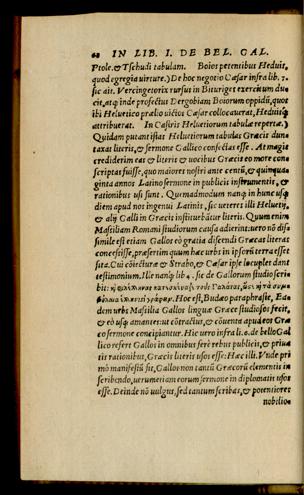 68 IN LIB. I. DE BEL. GAL.
Ptole. & Tschudi tabulam. Boios petentibus Heduis,
quod egregia virture.) De hoc negotio Cæsar infra lib. 7.
sic ait. Vercingetorix rursus in Bituriges exercitum du=
cit, atq; inde profectus Dergobiam Boiorum oppidũ, quos
ibi Helvetico prælio victos Cæsar collocaverat, Heduisq;
attribuerat. In Castris Helvetiorum tabulæ repertæ.)
Quidam putant istas Helvetiorum tabulas Græcis dun=
taxat literis, & sermone Gallico confectas esse. At magis
crediderim eas & literis & vocibus Græcis eo more con=
scriptas fuisse, quo maiores nostri ante centũ, & quinqua=
ginta annos Latino sermone in publicis instrumentis, &
rationibus usi sunt. Quemadmodum nanq; in hunc usq;
diem apud nos ingenui Latinis, sic veteres illi Helvetij,
& alij Galli in Græcis instituebãtur literis. Quum enim
Maßiliam Romani studiorum causa adierint: vero nõ dis=
simile est etiam Gallos eò gratia discendi Græcas literas
conceßisse, præsertim quum hæc urbs in ipsorũ terra esset
sita. Cui cõiecturæ & Strabo, & Cæsar ipse locuples dant
testimonium. Ille nanq; lib. 4. sic de Gallorum studio scri=
bit:
Hoc est, Budæo paraphraste, Ea=
dem urbs Maßilia Gallos linguæ Græcæ studiosos fecit,
& eò usq; amantes: ut cõtractus, & cõventa apud eos Græ
co sermone concipiantur. Hic vero infra li. 6. de bello Gal
lico refert Gallos in omnibus ferè rebus publicis, & priva
tis rationibus, Græcis literis usos esse: Hæc illi. Unde pri
mò manifestũ fit, Gallos non tantũ Græcorũ elementis in
scribendo, verumetiam eorum sermone in diplomatis usos
esse. Deinde nõ vulgus, sed tantum scribas, & potentiores
nobilio=